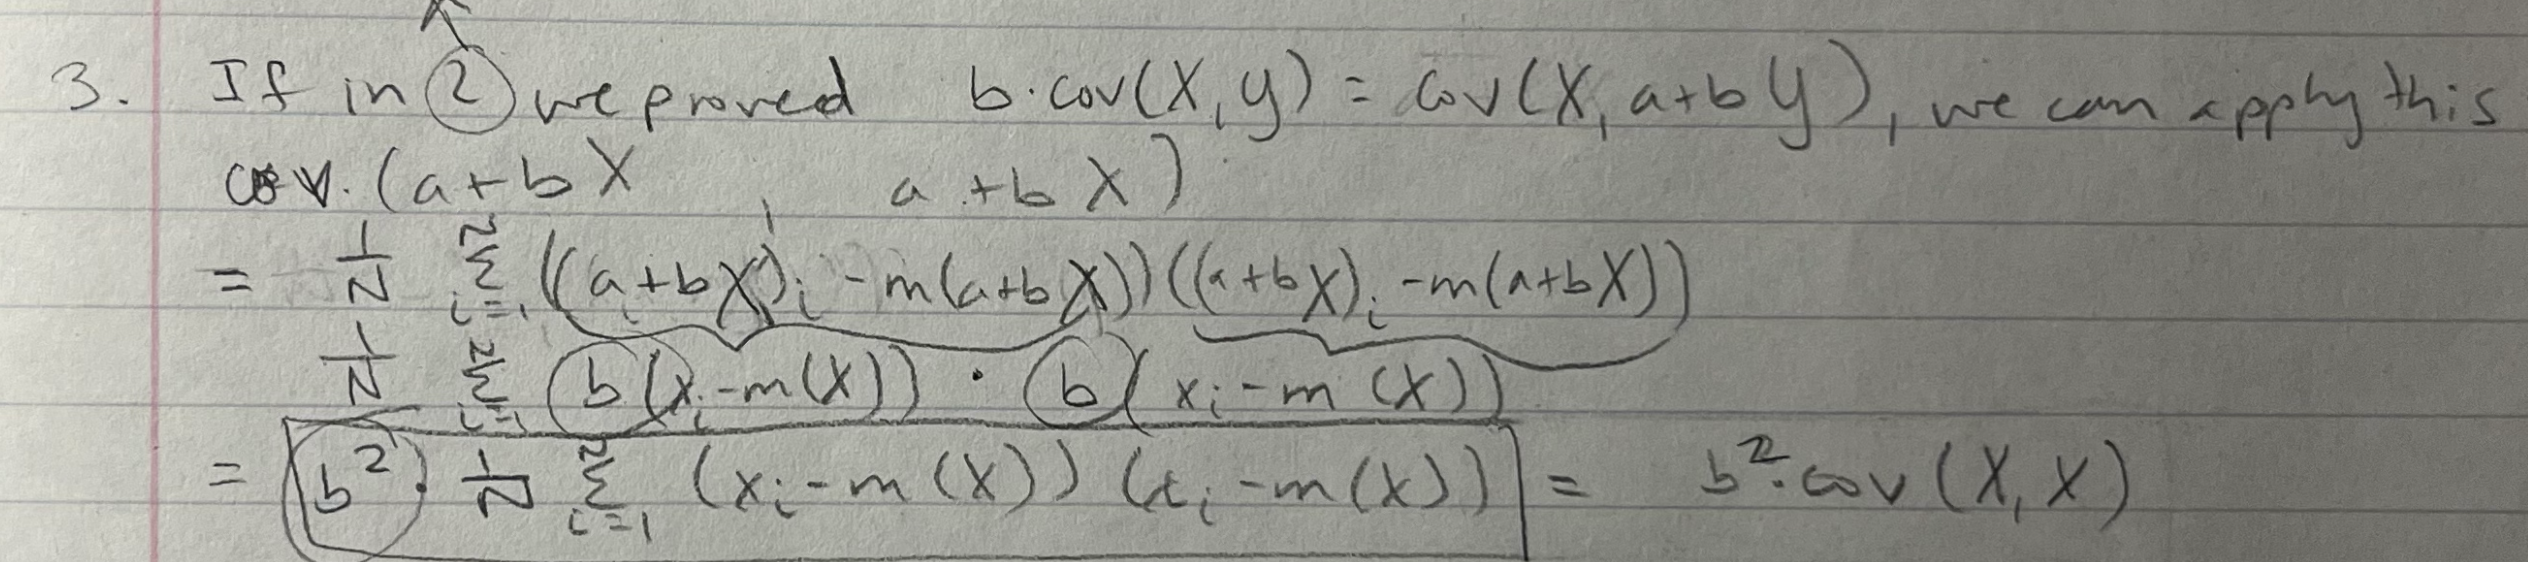 3. If in ② we proved b·cov(X, y) = cov(X, a+bY), we can apply this
cov. (a+bX , a+bX)
= 1/N Σ_{i=1}^{N} ((a+bX)_i - m(a+bX))((a+bX)_i - m(a+bX))
1/N Σ_{i=1}^{N} b(x_i - m(X)) · b(x_i - m(X))
= b² · 1/N Σ_{i=1}^{N} (x_i - m(X))(x_i - m(X)) = b² · cov(X, X)